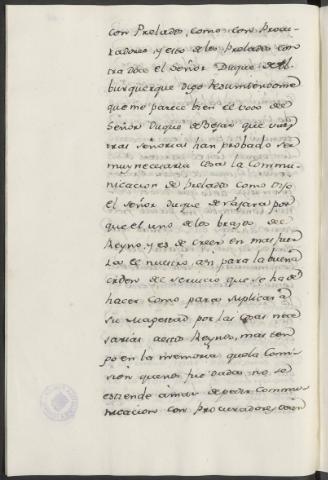 con Prelados, como con Procu-
radores, y esto de los Prelados con
tradice el Señor Duque de Al
burquerque Digo Resumiendome
que me parece bien el voto del
Señor Duque de Bejar que vues
tras señorias han probado ser
muy necesaria cosa la Commu-
nicacion de Prelados como Dijo
el señor Duque de Najara por
que el uno de los brazos del
Reyno, y es de creer en mas fuer
za el nuestro, asi para la buena
orden del servicio que se ha de
hacer como para suplicar a
Su Magestad por las cosas nece
sarias a estos Reynos, mas ten
go en la memoria que la Comi
sion que nos fue dada no se
estiende a mas de pedir Commu-
nicacion con Procuradores